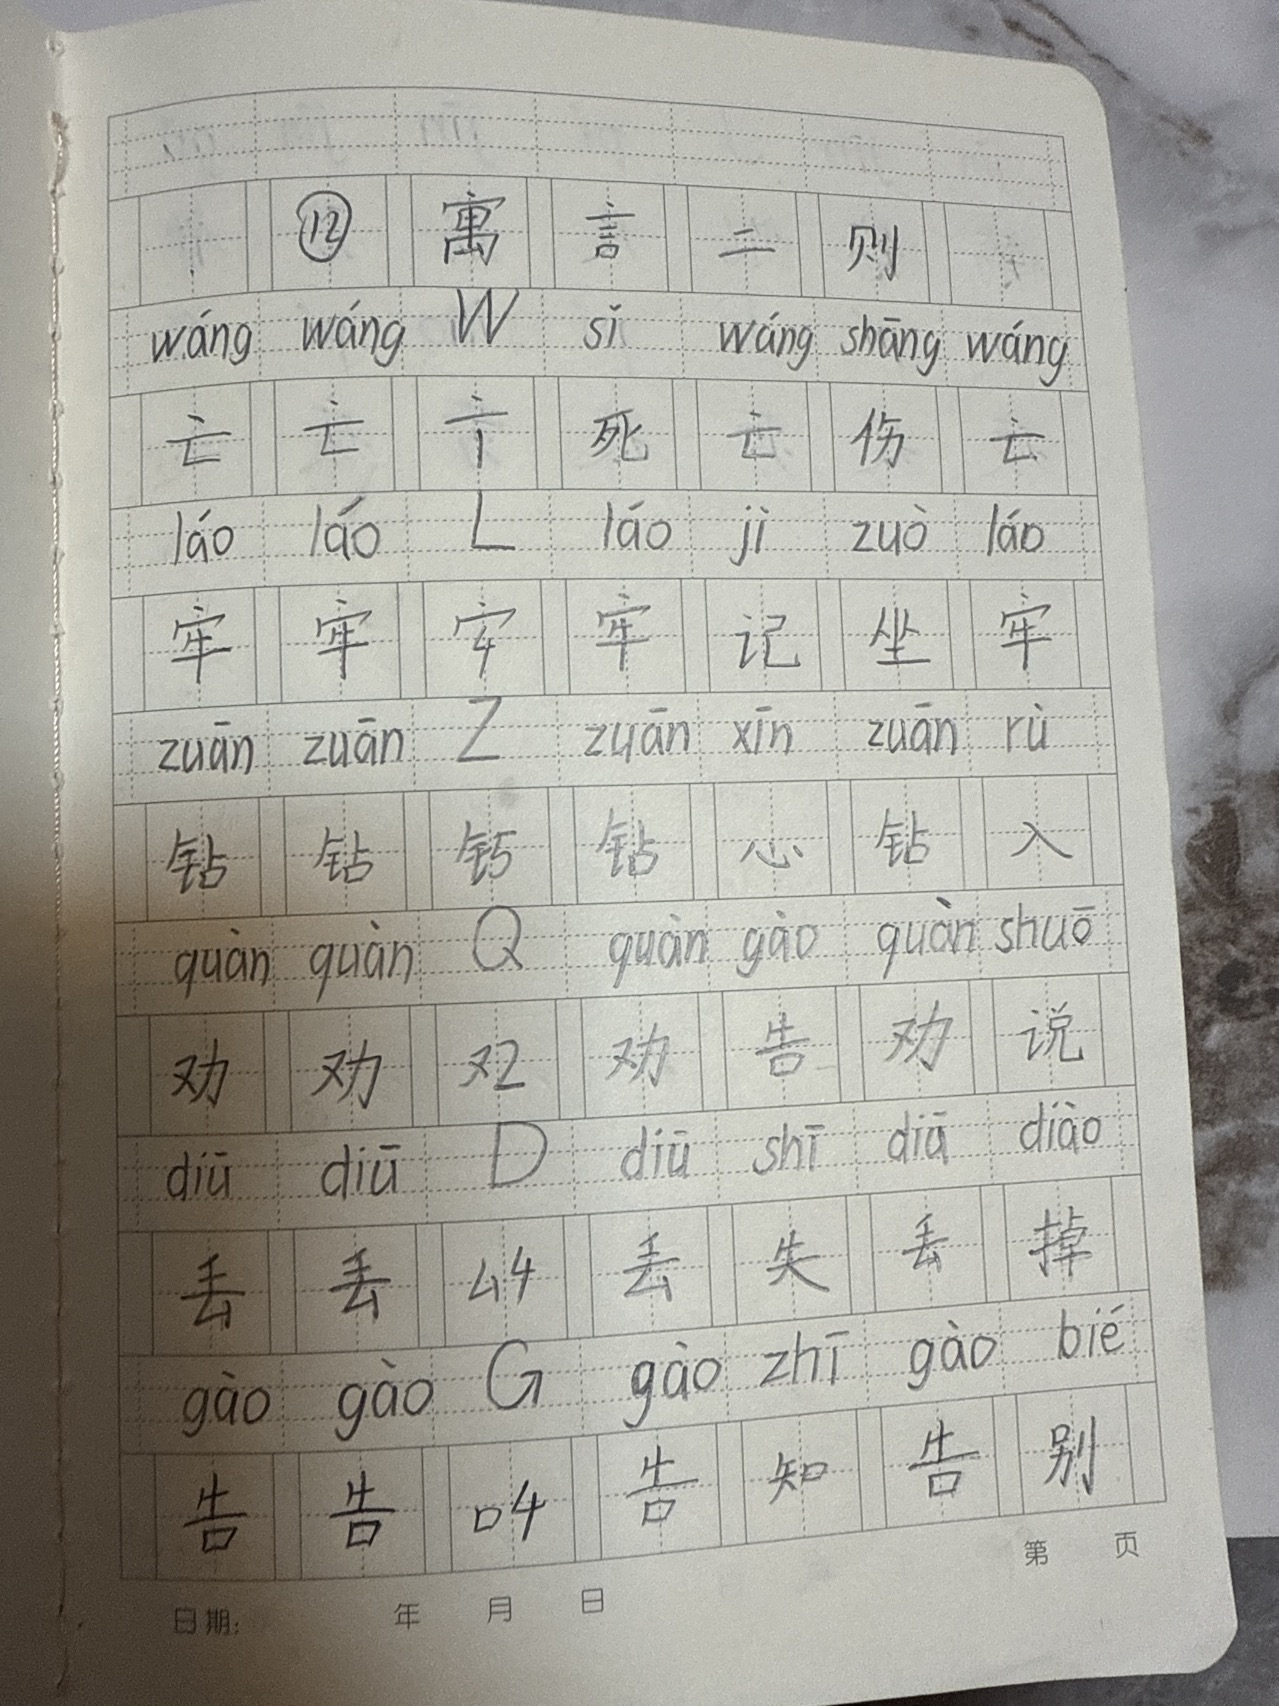 ⑫ 寓 言 二 则
wáng wáng W sǐ wáng shāng wáng
亡 亡 亠1 死 亡 伤 亡
láo láo L láo jì zuò láo
牢 牢 宀4 牢 记 坐 牢
zuān zuān Z zuān xīn zuān rù
钻 钻 钅5 钻 心 钻 入
quàn quàn Q quàn gào quàn shuō
劝 劝 又2 劝 告 劝 说
diū diū D diū shī diū diào
丢 丢 厶4 丢 失 丢 掉
gào gào G gào zhī gào bié
告 告 口4 告 知 告 别
第 页
日期: 年 月 日